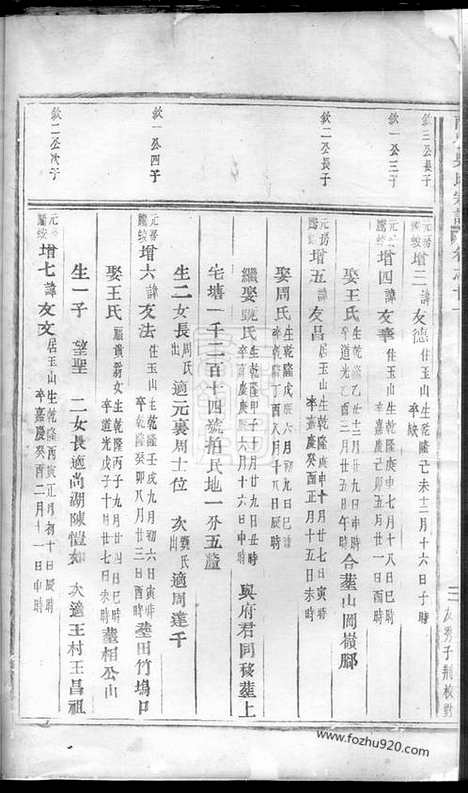 欽三公長子
元房 增三 諱 友德 住玉山 生乾隆己未十二月十六日子時
卒缺
欽一公三子
增四 諱 友華 住玉山 生乾隆庚申七月十八日巳時
卒嘉慶 三月廿一日酉時
娶王氏 生乾隆乙丑十二月廿九日申時 合塟山岡嶺腳
卒道光乙酉三月廿五日午時
欽二公長子
元房 增五 諱 友昌 生乾隆 九月廿七日辰時
卒嘉慶癸酉正月十五日未時
娶周氏 生乾隆戊辰六月初九日巳時
卒乾隆丁酉八月初八日辰時
繼娶甄氏 生乾隆甲子十月廿九日丑時 與府君同移塟上
卒嘉慶 六月十六日申時
宅塘一千二百十四號拍民地一分五釐
生二女長 周氏出 適元裏周士位 次 甄氏出 適周達千
欽一公四子
元房 增六 諱 友法 住玉山 生乾隆壬戌九月初六日寅時 塟田竹塢口
卒乾隆癸卯八月廿三日 時
娶王氏 生乾隆丙子九月廿四日巳時 塟相公山
卒道光戊子十月廿七日未時
生一子 望聖 二女長適尚湖陳愷 次適王村王昌祖
欽二公次子
元房 增七 諱 友文 居玉山 生乾隆丙寅正月初十日辰時
卒嘉慶癸酉二月十一日申時
www.fozhu920.com